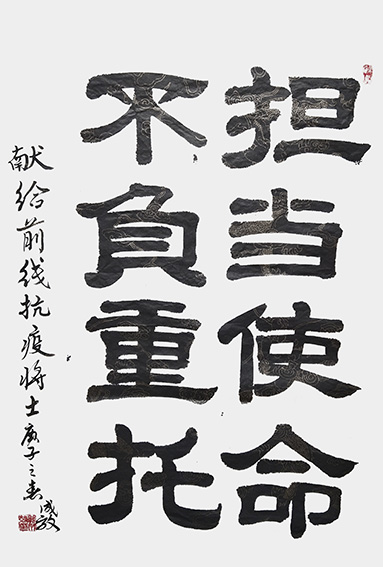 担当使命
不负重托
献给前线抗疫将士庚子之春